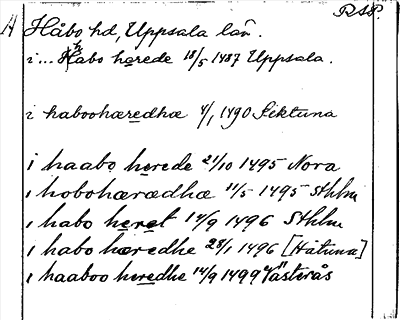 RAP.
H Håbo hd, Uppsala län.
i ... Habo herede 18/5 1487 Uppsala.
i haboohæredhæ 4/1 1490 Siktuna
i haabo herede 21/10 1495 Nora
i hobohærædhæ 11/5 1495 Sthlm
i habo heret 14/9 1496 Sthlm
i habo hæredhe 28/1 1496 [Håtuna]
i haaboo heredhe 14/9 1499 Västerås